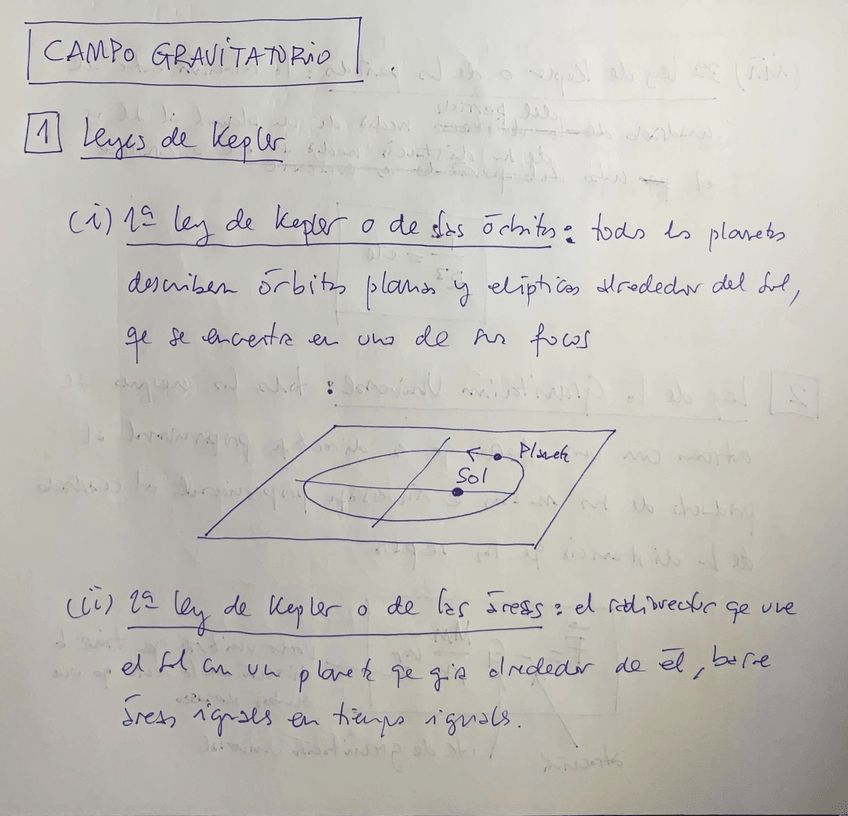 CAMPO GRAVITATORIO
1 Leyes de Kepler
(i) 1ª ley de Kepler o de las órbitas: todos los planetas
describen órbitas planas y elípticas alrededor del Sol,
qe se encuentra en uno de sus focos
Planeta
Sol
(ii) 2ª ley de Kepler o de las áreas: el radiovector qe une
el Sol con un planeta qe gira alrededor de él, barre
áreas iguales en tiempos iguales.